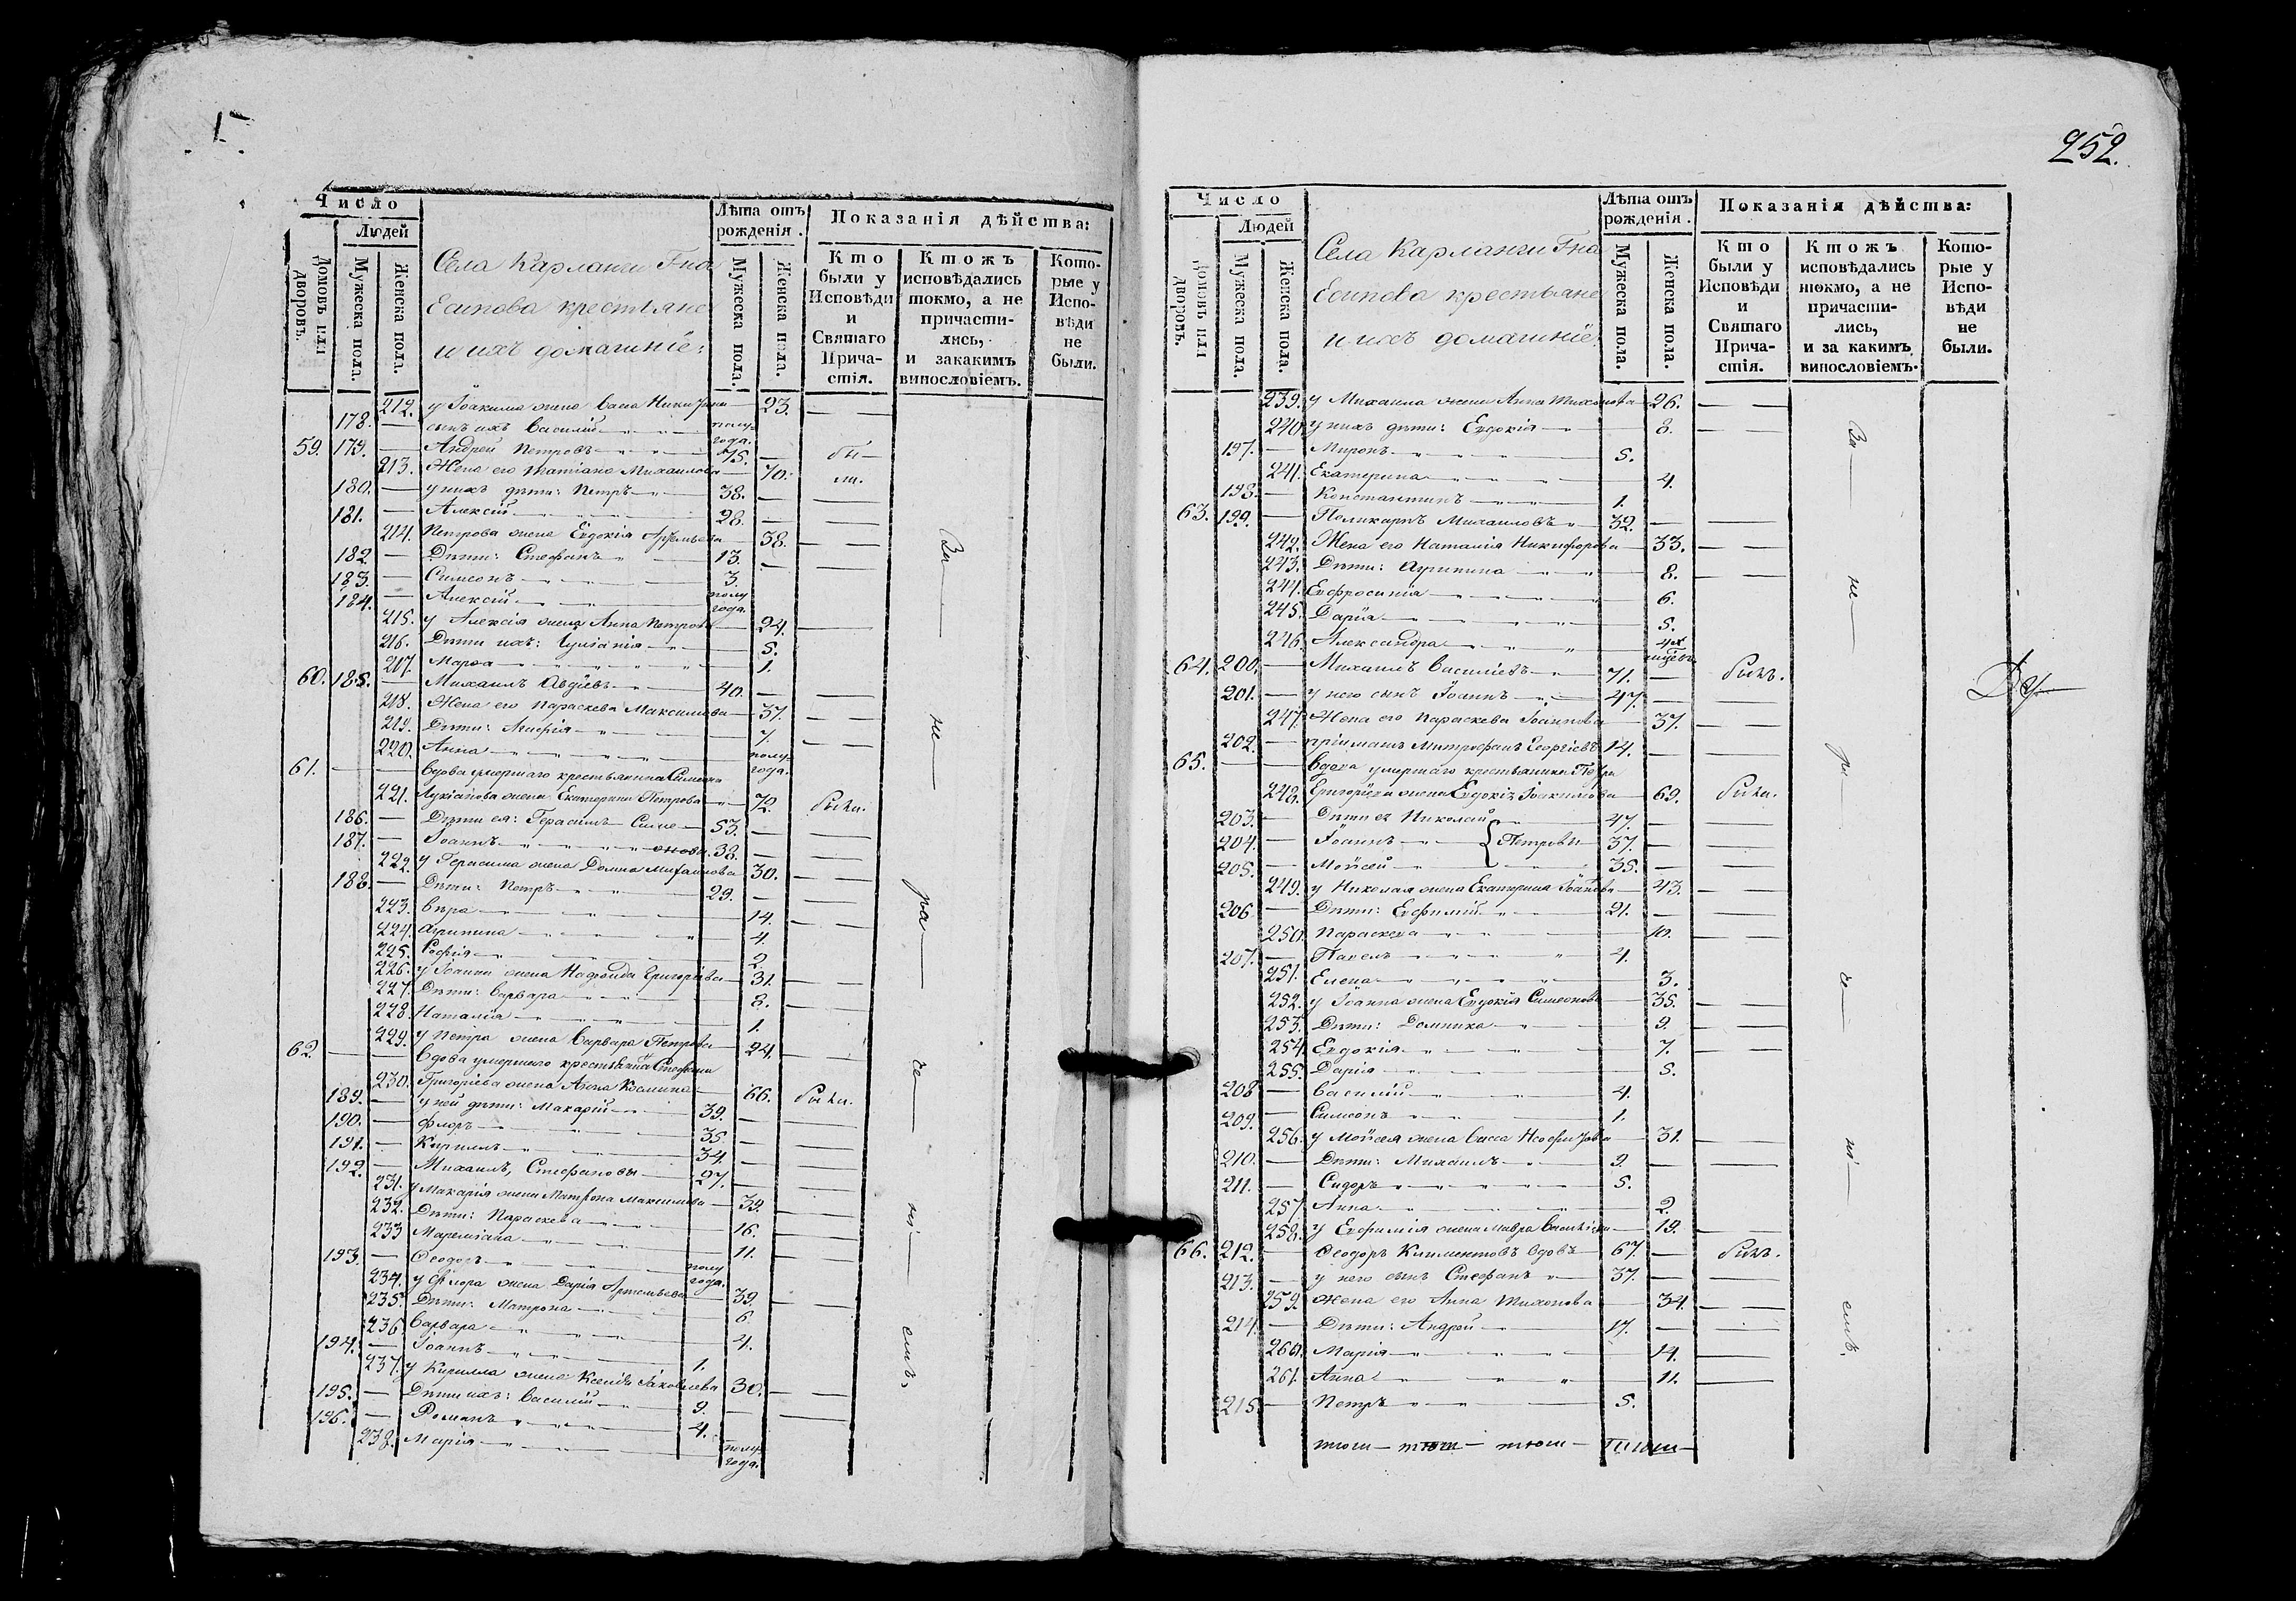 Число
Людей
Домовъ или дворовъ.
Мужеска пола.
Женска пола.
Села Карланги Гна
Есипова крестьяне
и ихъ домашніе:
Лѣта отъ рожденія.
Мужеска пола.
Женска пола.
Показанія дѣйства:
Кто были у Исповѣди и Святаго Причастія.
Ктожъ исповѣдались токмо, а не причастились, и закакимъ винословіемъ.
Которые у Исповѣди не были.
212. у Іоакима жена Васса 23.
178. — сынъ ихъ Василій полугода.
59. 179. — Андрей Петровъ 75. — бы—
213. Жена его Татіана Михаилова 70. ли.
180. — у нихъ дѣти: Петръ 38. —
181. — Алексій 28. —
214. Петрова жена Евдокія 38.
182 — Дѣти: Стефанъ 13. —
183. — Симеонъ 3.
184. — Алексій полугода.
215. у Алексія жена Анна Петрова 24.
216. Дѣти ихъ: Іуліанія 5.
217. Марѳа 1.
60. 185. — Михаилъ Авдіевъ 40. —
218. Жена его Параскева Максимова 37.
219. Дѣти: 7.
220. Анна полугода.
61. — — Вдова умершаго крестьянина Симеона
221. Лукіанова жена Екатерина Петрова 72. была.
186. — Дѣти ея: Герасимъ Симе- 53. —
187. — Іоаннъ оновы 38. —
222. у Герасима жена Домна Михаилова 30.
188. — Дѣти: Петръ 29. —
223. Вѣра 14.
224. Агрипина 4.
225. Софія 2.
226. у Іоанна жена Григоріева 31.
227. Дѣти: Варвара 8.
228. Наталія 1.
229. у Петра жена Варвара Петрова 24.
62. — — Вдова умершаго крестьянина Стефана
230. Григоріева жена Анна Космина 66. была.
189. — у ней дѣти: Макарій 39. —
190. — Флоръ 35. —
191. — Кириллъ 34. —
192. — Михаилъ, Стефановы 27. —
231. у Макарія жена Матрона Максимова 39.
232. Дѣти: Параскева 16.
233 Мареміана 11.
193. — Ѳеодоръ полугода.
234. у Флора жена Дарія Артемьева 39.
235. Дѣти: Матрона 6
236. Варвара 4.
194. — Іоаннъ 1.
237. у Кирилла жена Ксенія Іаковлева 30.
195. — Дѣти ихъ: Василій 9. —
196. — Романъ 4.
238. Марія полугода.
За — не — ра — че — ні — емъ.
252.
Число
Людей
Домовъ или дворовъ.
Мужеска пола.
Женска пола.
Села Карланги Гна
Есипова крестьяне
и ихъ домашніе:
Лѣта отъ рожденія.
Мужеска пола.
Женска пола.
Показанія дѣйства:
Кто были у Исповѣди и Святаго Причастія.
Ктожъ исповѣдались токмо, а не причастились, и за какимъ винословіемъ.
Которые у Исповѣди не были.
239. у Михаила жена Анна Тихонова 26.
240. у нихъ дѣти: Евдокія 8.
197. — Миронъ 5.
241. Екатерина 4.
198. — Константинъ 1.
63. 199. — Поликарпъ Михаиловъ 32. —
242. Жена его Наталія Никифорова 33.
243. Дѣти: Агрипина 8.
244. Евфросинія 6.
245. Дарія 5.
246. Александра 4х
64. 200. — Михаилъ Василіевъ 71. — былъ.
201. — у него сынъ Іоаннъ 47. —
247. Жена его Параскева Іоаннова 37.
202. — пріимашъ Митрофанъ Георгіевъ 14. —
65. — — Вдова умершаго крестьянина Петра
248. Григоріева жена Евдокія Іоакимова 69. была.
203. — Дѣти ея Николай 47. —
204. — Іоаннъ Петровы 37. —
205. — Мойсей 35. —
249. у Николая жена Екатерина 43.
206 — Дѣти: Евфимій 21. —
250. Параскева 10.
207. — Павелъ 4.
251. Елена 3.
252. у Іоанна жена Евдокія Симеонова 35.
253. Дѣти: Домника 9.
254. Евдокія 7.
255. Дарія 5.
208 — Василій 4.
209. — Симеонъ 1.
256. у Мойсея жена Васса 31.
210. — Дѣти: Михаилъ 9. —
211. — Сидоръ 5.
257. Анна 2.
258. у Евфимія жена Мавра 19.
66. 212. — Ѳеодоръ Климентовъ вдовъ 67. — былъ.
213. — у него сынъ Стефанъ 37. —
259. Жена его Анна Тихонова 34.
214. — Дѣти: Андрей 17. —
260. Марія 14.
261. Анна 11.
215. — Петръ 5.
За — не — ра — че — ні — емъ.